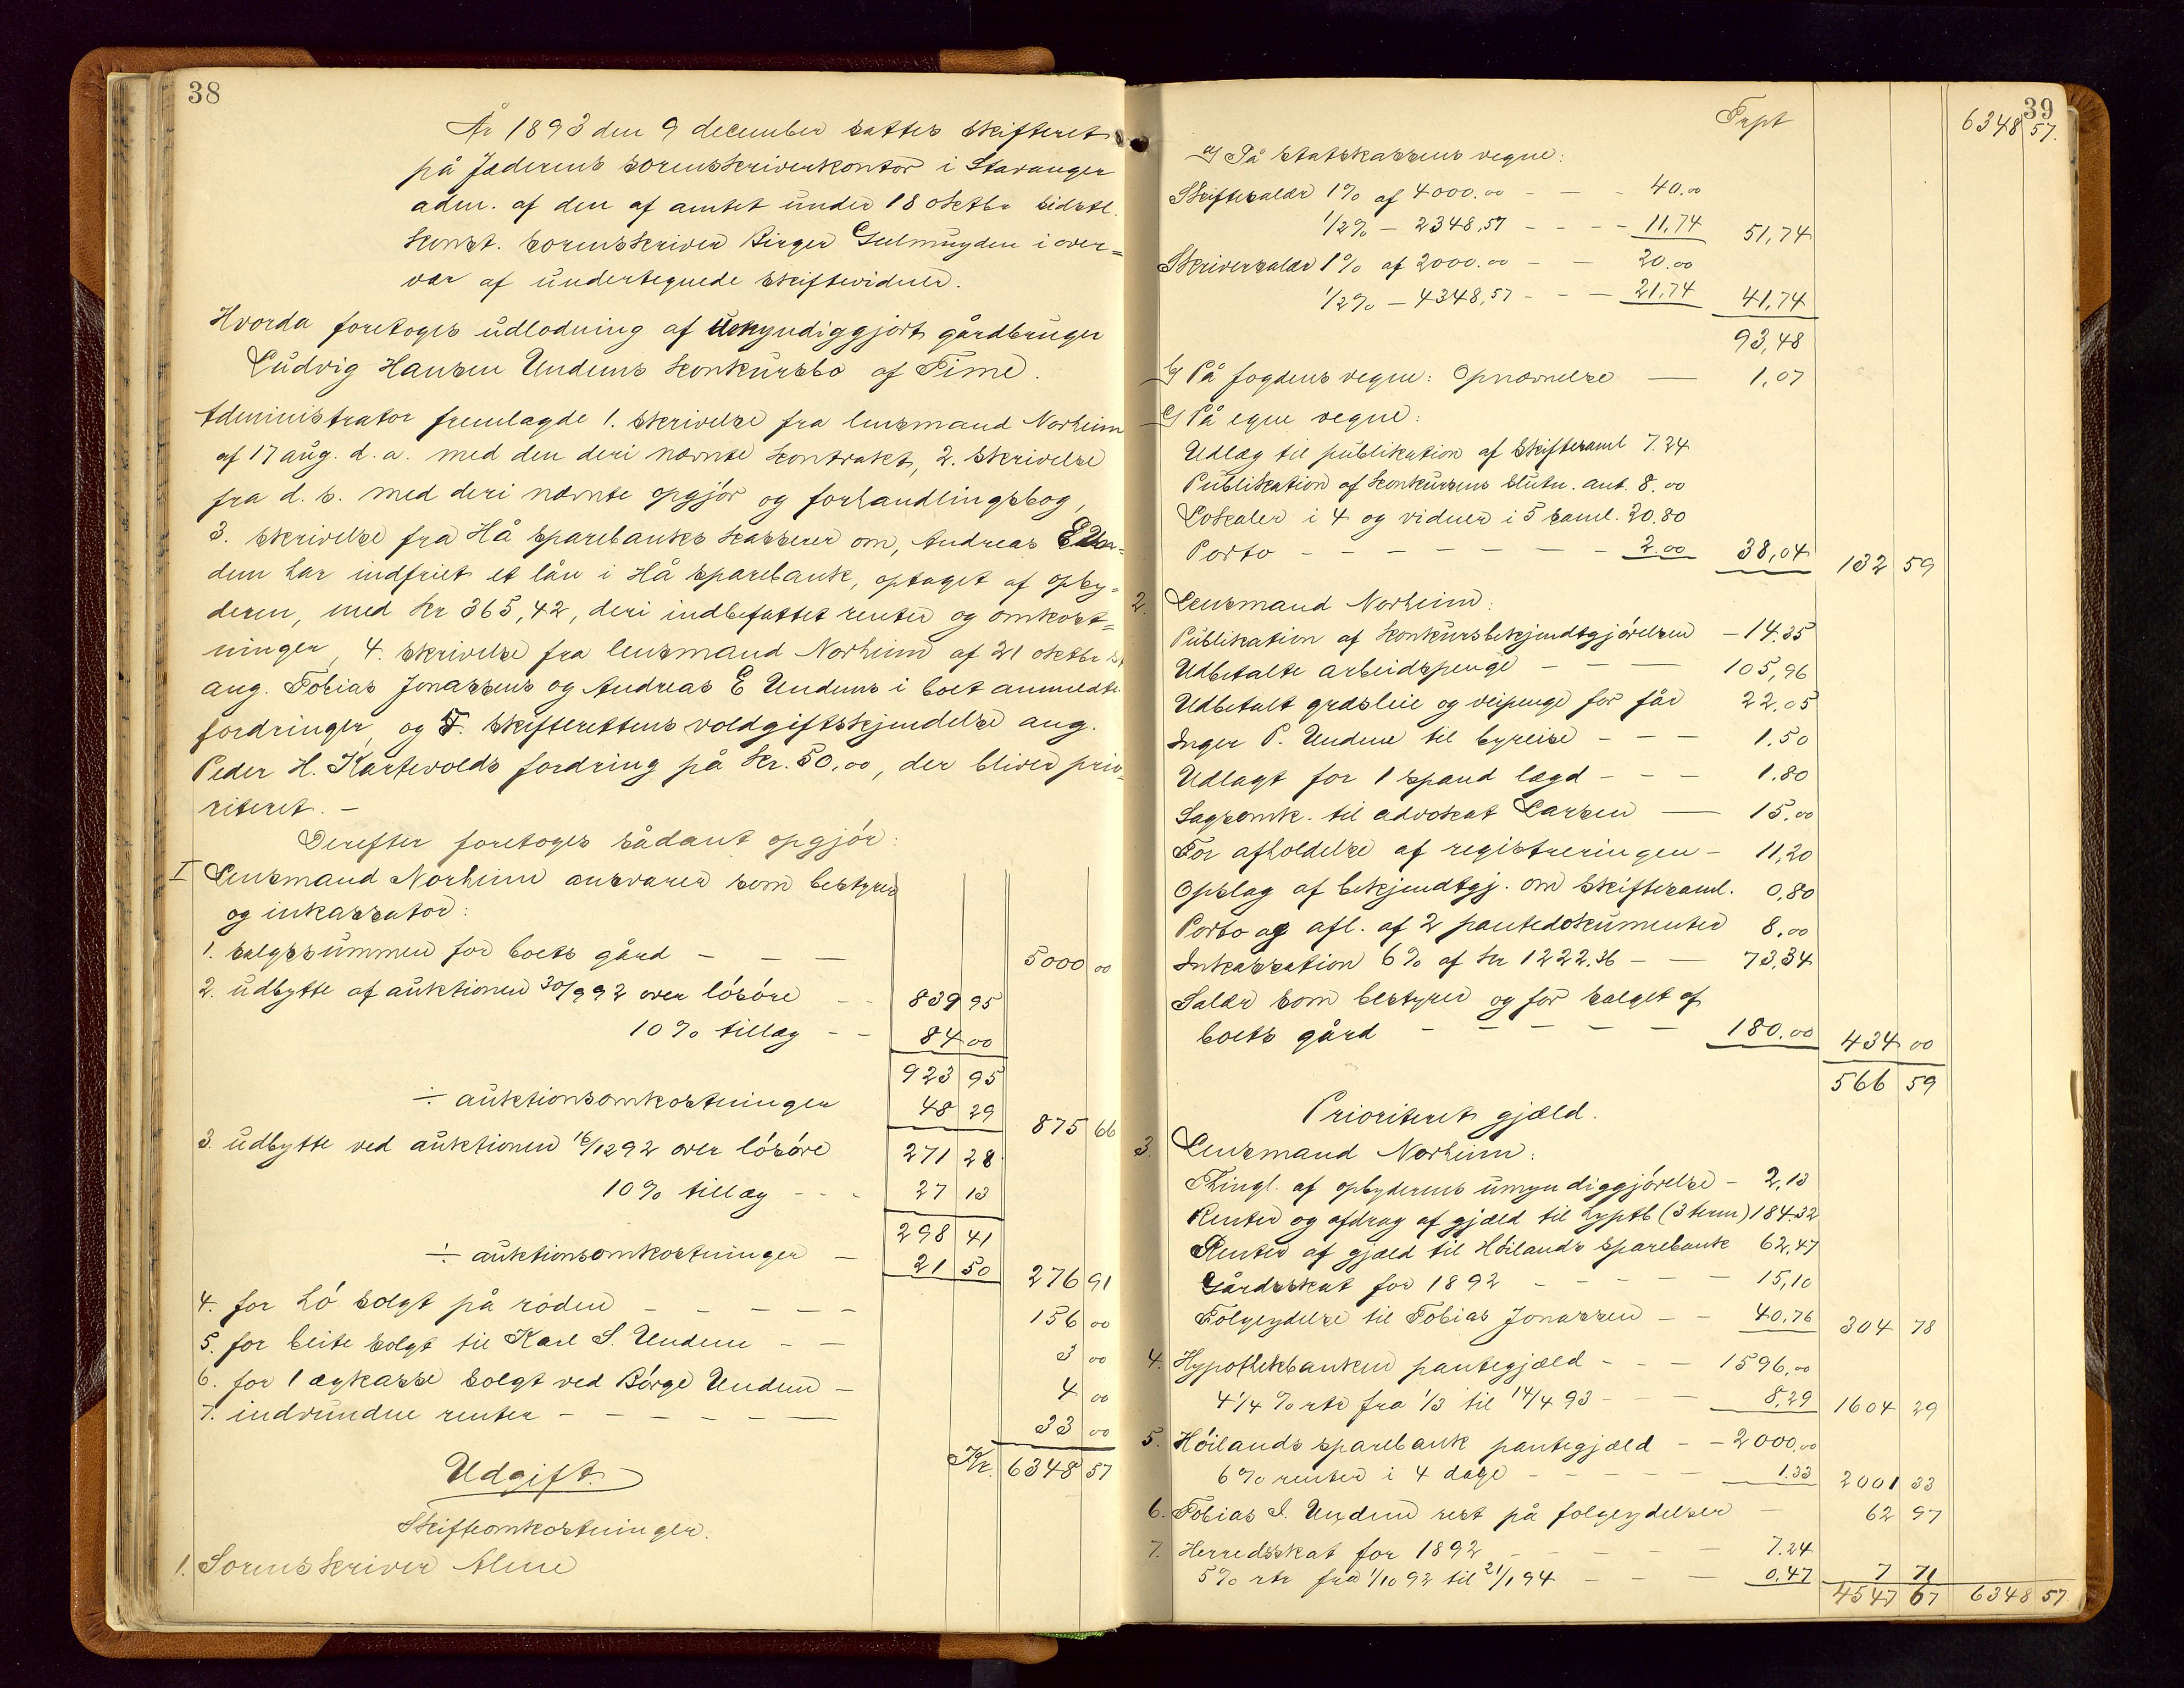 38
År 1893 den 9 december sattes skifteret
på Jæderens sorenskriverkontor i Stavanger
adm. af den af amtet under 18 oktbr sidstl.
konst. sorenskriver Birger Gulmuyden i over=
vær af undertegnede skiftevidner.
Hvorda foretoges udlodning af umyndiggjort gårdbruger
Ludvig Hansen Undems konkursbo af Time.
Administrator fremlagde 1. skrivelse fra lensmand Norheim
af 17 aug. d. a. med den deri nævnte kontrakt, 2. skrivelse
fra d. s. med deri nævnte opgjør og forhandlingsbog,
3. skrivelse fra Hå sparebanks kasserer om, Andreas E Un=
dem har indfriet et lån i Hå sparebank, optaget af opby=
deren, med kr 365,42, deri indbefattet renter og omkost=
ninger, 4. skrivelse fra lensmand Norheim af 21 oktbr
ang. Tobias Jonassens og Andreas E Undems i boet anmeldte
fordringer og 5. skifterettens voldgiftskjendelse ang.
Peder H. Kartevolds fordring på kr. 50,00, der bliver prio-
riteret. -
Derefter foretoges sådant opgjør:
I Lensmand Norheim ansvarer som bestyrer
og inkassator:
1. salgssummen for boets gård - - — 5000 00
2. udbytte af auktionen 30/9 92 over løsøre - - 839 95
10% tillæg - - 84 00
923 95
÷ auktionsomkostninger 48 29 875 66
3. udbytte ved auktionen 16/12 92 over løsøre 271 28
10% tillæg - - - 27 13
298 41
÷ auktionsomkostninger - 21 50 276 91
4. for hø solgt på roden - - - - - 156 00
5. for beite solgt til Karl S. Undem - - 3 00
6. for 1 ægkasse solgt ved Børge Undem - 4 00
7. indvundne renter - - - - - — 33 00
Kr. 6348 57
Udgift.
Skifteomkostninger.
1. Sorenskriver Alme
39
Trpt 6348 57.
a) På statskassens vegne:
Skiftesalær 1% af 4000.00 - - - 40.00
1/2% - 2348,57 - - - 11,74 51,74
Skriversalær 1% af 2000.00 - - 20.00
1/2% - 4348,57 - - - 21,74 41,74
93,48
b) På fogdens vegne: Opnævnelse — 1,07
c) På egne vegne:
Udlæg til publikation af skiftesaml 7.24
Publikation af konkursens slutn. ant. 8.00
Lokaler i 4 og vidner i 5 saml. 20.80
Porto - - - - - - - 2.00 38,04 132 59
2. Lensmand Norheim:
Publikation af konkursbekjendtgjørelsen - 14.35
Udbetalte arbeidspenge - - — 105,96
Udbetalt græsleie og veipenge for får 22.05
Inger P. Undem til byreise - - - 1.50
Udlagt for 1 spand lagd - - - 1.80
Sagsomk. til advokat Larsen — 15.00
For afholdelse af registreringen - 11,20
Opslag af bekjendtgj. om skiftesaml. 0,80
Porto og afl. af 2 pantedokumenter 8.00
Inkassation 6% af kr 1222.36 - — 73,34
Salær som bestyrer og for salget af
boets gård - - - - - 180.00 434 00
566 59
Prioriteret gjæld.
3. Lensmand Norheim:
Thingl. af opbyderens umyndiggjørelse - 2,13
Renter og afdrag af gjæld til hyptb (3 term) 184.32
Renter af gjæld til Høilands sparebank 62,47
Gårdsskat for 1892 - - - - - 15,10
Følgeydelse til Tobias Jonassen - - 40.76 304 78
4. Hypothekbanken pantegjæld - - - 1596.00
4 1/4 % rtr fra 1/3 til 14/4 93 - - 8.29 1604 29
5. Høilands sparebank pantegjæld - - 2000.00
6% renter i 4 dage - - - - - 1.33 2001 33
6. Tobias J. Undem rest på følgeydelser - 62 97
7. Herredsskat for 1892 - - - - - 7.24
5% rtr fra 1/10 92 til 21/1 94 - - — 0.47 7 71
4547 67 6348 57